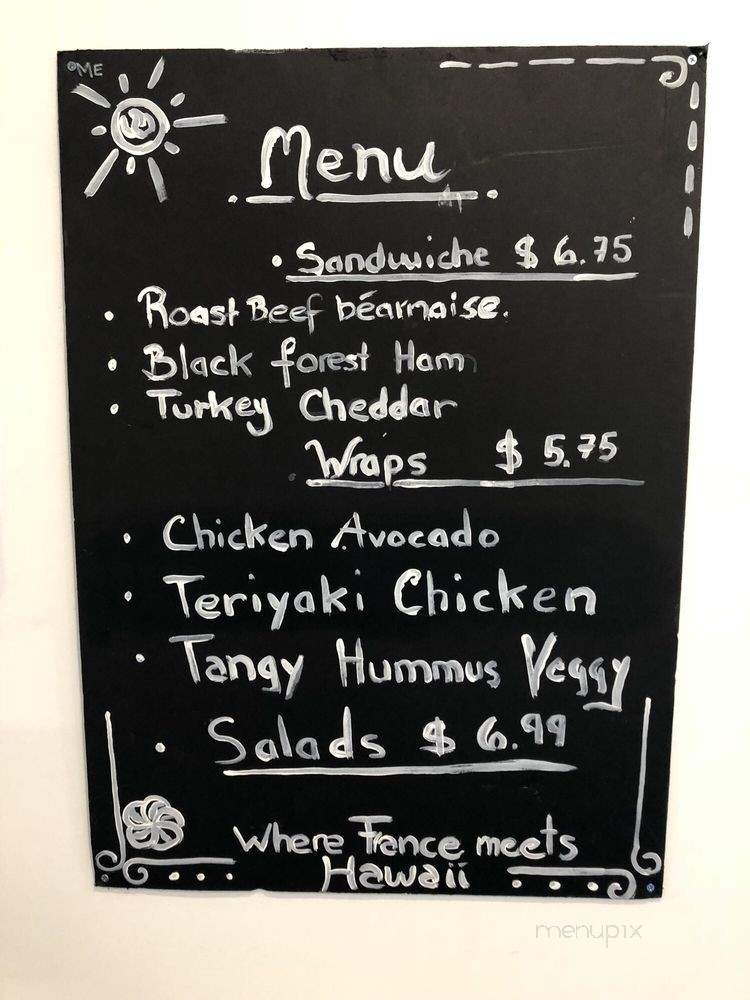 ME
Menu
• Sandwiche $ 6.75
• Roast Beef béarnaise.
• Black forest Ham
• Turkey Cheddar
Wraps $ 5.75
• Chicken Avocado
• Teriyaki Chicken
• Tangy Hummus Veggy
• Salads $ 6.99
Where France meets
Hawaii
menupix